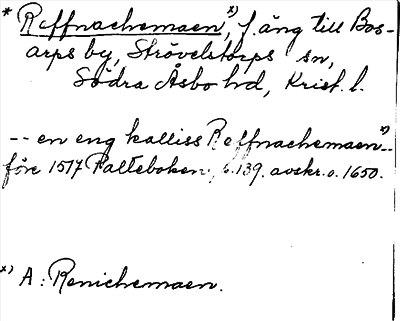 * Reffnachemaen,x) f. äng till Bos-
arps by, Strövelstorps sn,
Södra Åsbo hd, Krist. l.
-- en eng kalliss Reffnachemaenx)--
före 1517 Palteboken, s. 139. avskr. o. 1650.
x) A: Renichemaen.